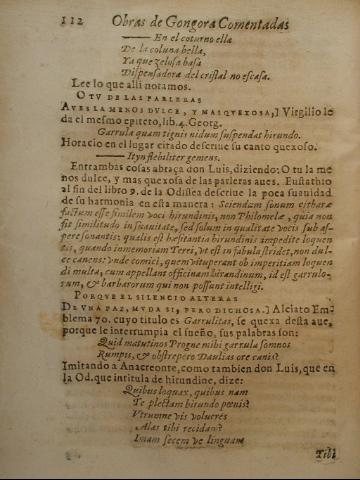 112 Obras de Gongora Comentadas
En el coturno ella
De la coluna bella,
Ya que zelosa basa
Dispensadora del cristal no escasa.
Lee lo que alli notamos.
O TU DE LAS PARLERAS
AVES LA MENOS DULCE, Y MAS QUEXOSA,] Virgilio le
da el mesmo epiteto, lib. 4. Georg.
Garrula quam tignis nidum suspendat hirundo.
Horacio en el lugar citado descriue su canto quexoso.
Ityn flebiliter gemens.
Entrambas cosas abraça don Luis, diziendo: O tu la me
nos dulce, y mas quexosa de las parleras aues. Eustathio
al fin del libro 9. de la Odissea descriue la poca suauidad
de su harmonia en esta manera: Sciendum sonum citharæ
factum esse similem voci hirundinis, non Philomelæ, quia non
fit similitudo in suauitate, sed solum in qualitate vocis sub as-
pere sonantis: qualis est hæsitantia hirundinis impedite loquen
tis, quando in memoriam Terei, vt est in fabulis ridet, non dul-
ce canens: vnde comici, quem vituperant ob imperitiam loquen
di multa, cum appellant officinam hirundinum, id est garrulo-
rum, & barbarorum qui non possunt intelligi.
PORQUE EL SILENCIO ALTERAS
DE VNA PAZ, MVDA SI, PERO DICHOSA.] Alciato Em-
blema 70. cuyo titulo es Garrulitas, se quexa desta aue,
porque le interrumpia el sueño, sus palabras son:
Quid matutinos Progne mihi garrula somnos
Rumpis, & obstrepero Daulias ore canis?
Imitando a Anacreonte, como tambien don Luis, que en
la Od. que intitula de hirundine, dize:
Quibus loquax, quibus nam
Te plectam hirundo pœnis?
Vtrumne vis volucres
Alas tibi recidam?
Imam secem ve linguam
Tibi